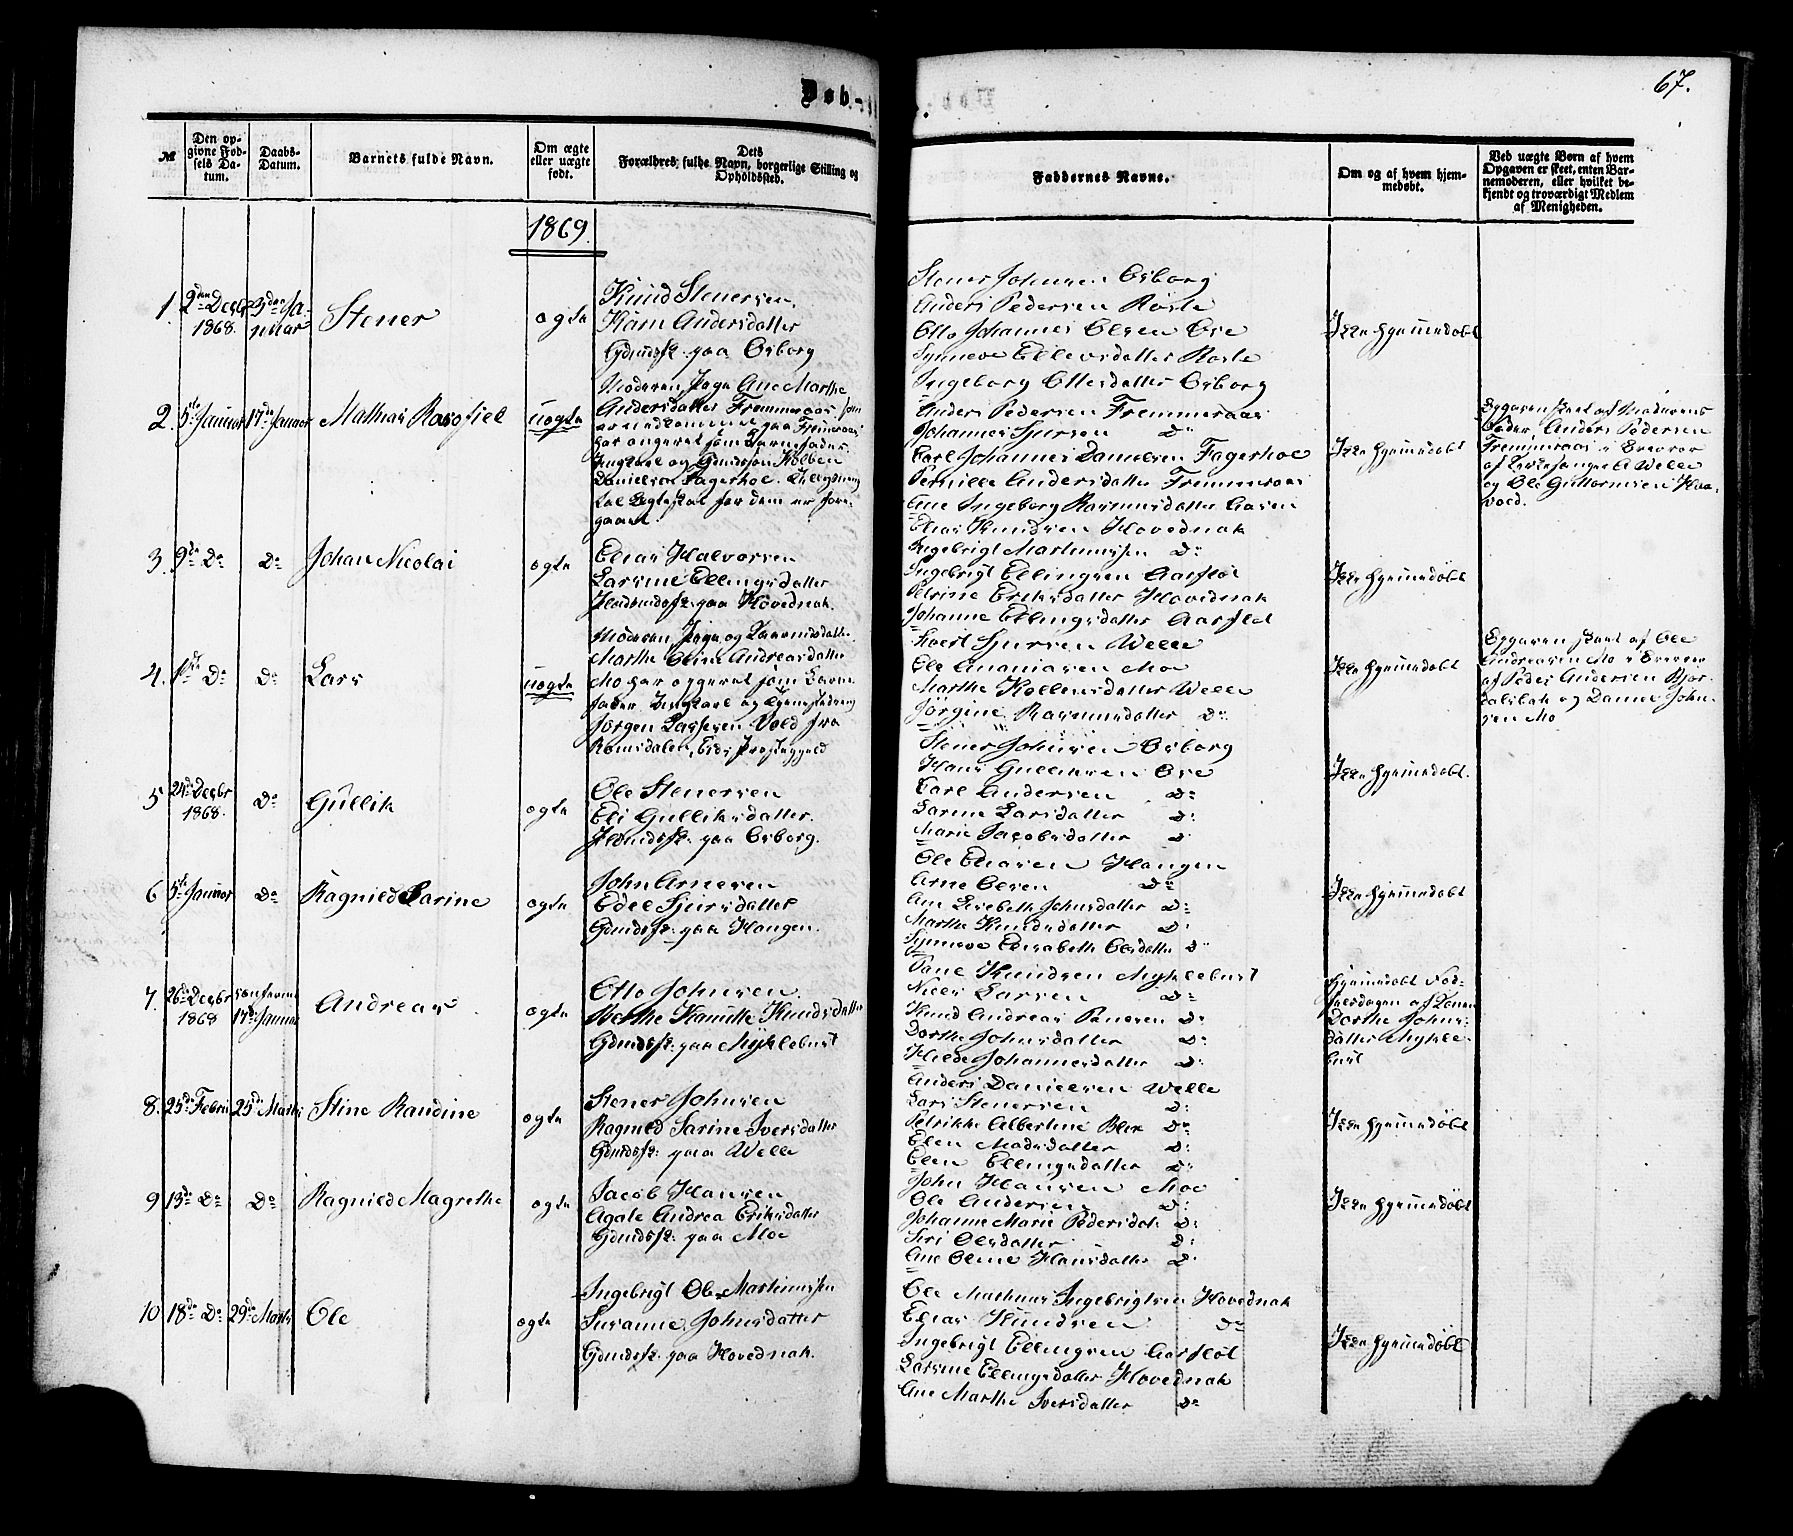 67.
Døb
№
Den opgivne Fødsels Datum.
Daabs-Datum.
Barnets fulde Navn.
Om ægte eller uægte født.
Dets Forældres fulde Navn, borgerlige Stilling og Opholdssted.
Faddernes Navne.
Om og af hvem hjemmedøbt.
Ved uægte Børn af hvem Opgaven er skeet, enten Barnemoderen, eller hvilket bekjendt og troværdigt Medlem af Menigheden.
1869.
1.
2den Decbr 1868.
3die Januar
Stener
ægte
Knud Stenersen,
Karn Andersdatter
Gdmdsfk: paa Osborg
Stener Johnsen Osborg
Anders Pedersen Røste
Otto Johannes Olsen Øre
Synneve Ellevsdatter Røste
Ingeborg Ottersdatter Osborg
Ikke hjemmedøbt
2
5te Januar
17de Januar
Mathias
uægte
Moderen Pige Ane Marthe
Andersdatter Fremmeraas
Danielsen Fagerhol.
Anders Pedersen Fremmeraas
Johannes Sjursen Do
Carl Johannes Danielsen Fagerhol
Pernille Andersdatter Fremmeraas
Ane Ingeborg Rasmusdatter Aasen
Ikke hjemmedøbt
Opgaven skeet af Moderens
Fader Anders Pedersen
Fremmeraas
og Ole Guttormsen
3.
9de Do
Do
Johan Nicolai
ægte
Elias Halvorsen
Larsine Ellingsdatter
paa Hovednak.
Elias Knudsen Hovednak
Ingebrigt Martinussen Do
Ingebrigt Ellingsen Aarflot
Petrine Eriksdatter Hovednak
Johanne Ellingsdatter Aarflot
Ikke hjemmedøbt
4.
1ste Do
Do
Lars
uægte
Moderen Pige og
Marthe Oline Andreasdatter
Mo har opgivet som Barne
fader
Jørgen Larssen Vold fra
Romsdalen,
Sjursen Welle
Ole Ananiasen Mo
Marthe Kolbensdatter Welle
Jørgine Rasmusdatter Do
Ikke hjemmedøbt
Opgaven skeet af Ole
Andreasen Mo
af Peder Andersen
og Daniel John-
sen Mo
5
24de Decbr 1868.
Do
Gullik
ægte
Ole Stenersen
Eli Gulliksdatter.
paa Osborg.
Stener Johnsen Osborg
Hans Gulliksen Øre
Carl Andersen Do
Larine Larsdatter Do
Marie Jacobsdatter Do
Ikke hjemmedøbt.
6
5te Januar
Do
Ragnild Sarine
ægte
John Arnesen
Edel Sjursdatter
Gdmdsfk: paa Haugen.
Ole Eliasen Haugen
Arne Olsen Do
Ane Lisebeth Johnsdatter Do
Marthe Knudsdatter Do
Synneve Elisabeth Olsdatter Do
Ikke hjemmedøbt
7.
26de Decbr 1868
17de Januar
Andreas
ægte
Otto Johnsen.
Berthe Kamille Knudsdatter
Gdmdsfk: paa Myklebust
Knudsen Myklebust
Niels Larsen Do
Knud Andreas Do
Dorthe Johnsdatter Do
Hilde Johannesdatter Do
Hjemmedøbt Fød-
selsdagen af
Dorthe Johns-
datter Mykle-
bust
8.
25de Febr
25de Marts
Stine Randine
ægte
Stener Johnsen
Ragnild Sarine Iversdatter
Gdmdsfk: paa Welle
Anders Danielsen Welle
Lars Stenersen Do
Petrikke Albertine Do
Elen Madsdatter Do
Elen Ellingsdatter Do
Ikke hjemmedøbt
9
13de Do
Do
Ragnild Magrethe
ægte
Jacob Hansen
Agate Andrea Eriksdatter
Gdmdsfk: paa Moe
John Hansen Moe
Ole Andersen Do
Johanne Marie Pedersdatr Do
Siri Olsdatter Do
Ane Oline Hansdatter Do
Ikke hjemmedøbt
10
18de Do
29de Marts
Ole
ægte
Ingebrigt Ole Martinussen
Susanne Johnsdatter
Gdmdsfk: paa Hovednak.
Ole Mathias Ingebrigtsen Hovednak
Elias Knudsen Do
Ingebrigt Ellingsen Aarflot
Larsine Ellingsdatter Hovednak
Ane Marthe Iversdatter Do
Ikke hjemmedøbt